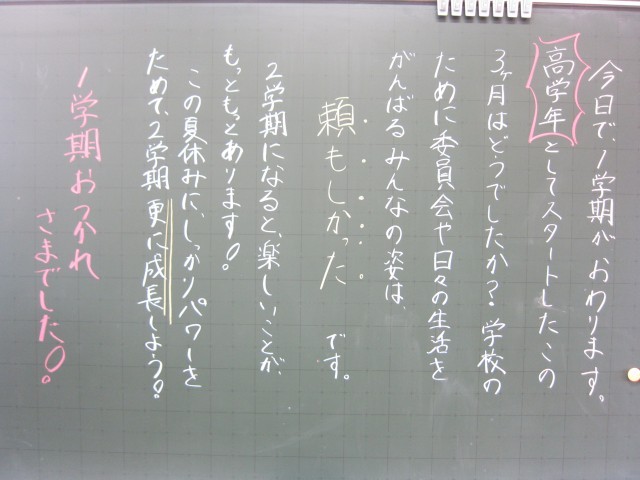 今日で、1学期がおわります。
高学年としてスタートしたこの
3ヶ月はどうでしたか？学校の
ために委員会や日々の生活を
がんばるみんなの姿は、
頼もしかった です。
2学期になると、楽しいことが、
もっともっとあります！
この夏休みに、しっかりパワーを
ためて、2学期更に成長しよう！
1学期おつかれ
さまでした！